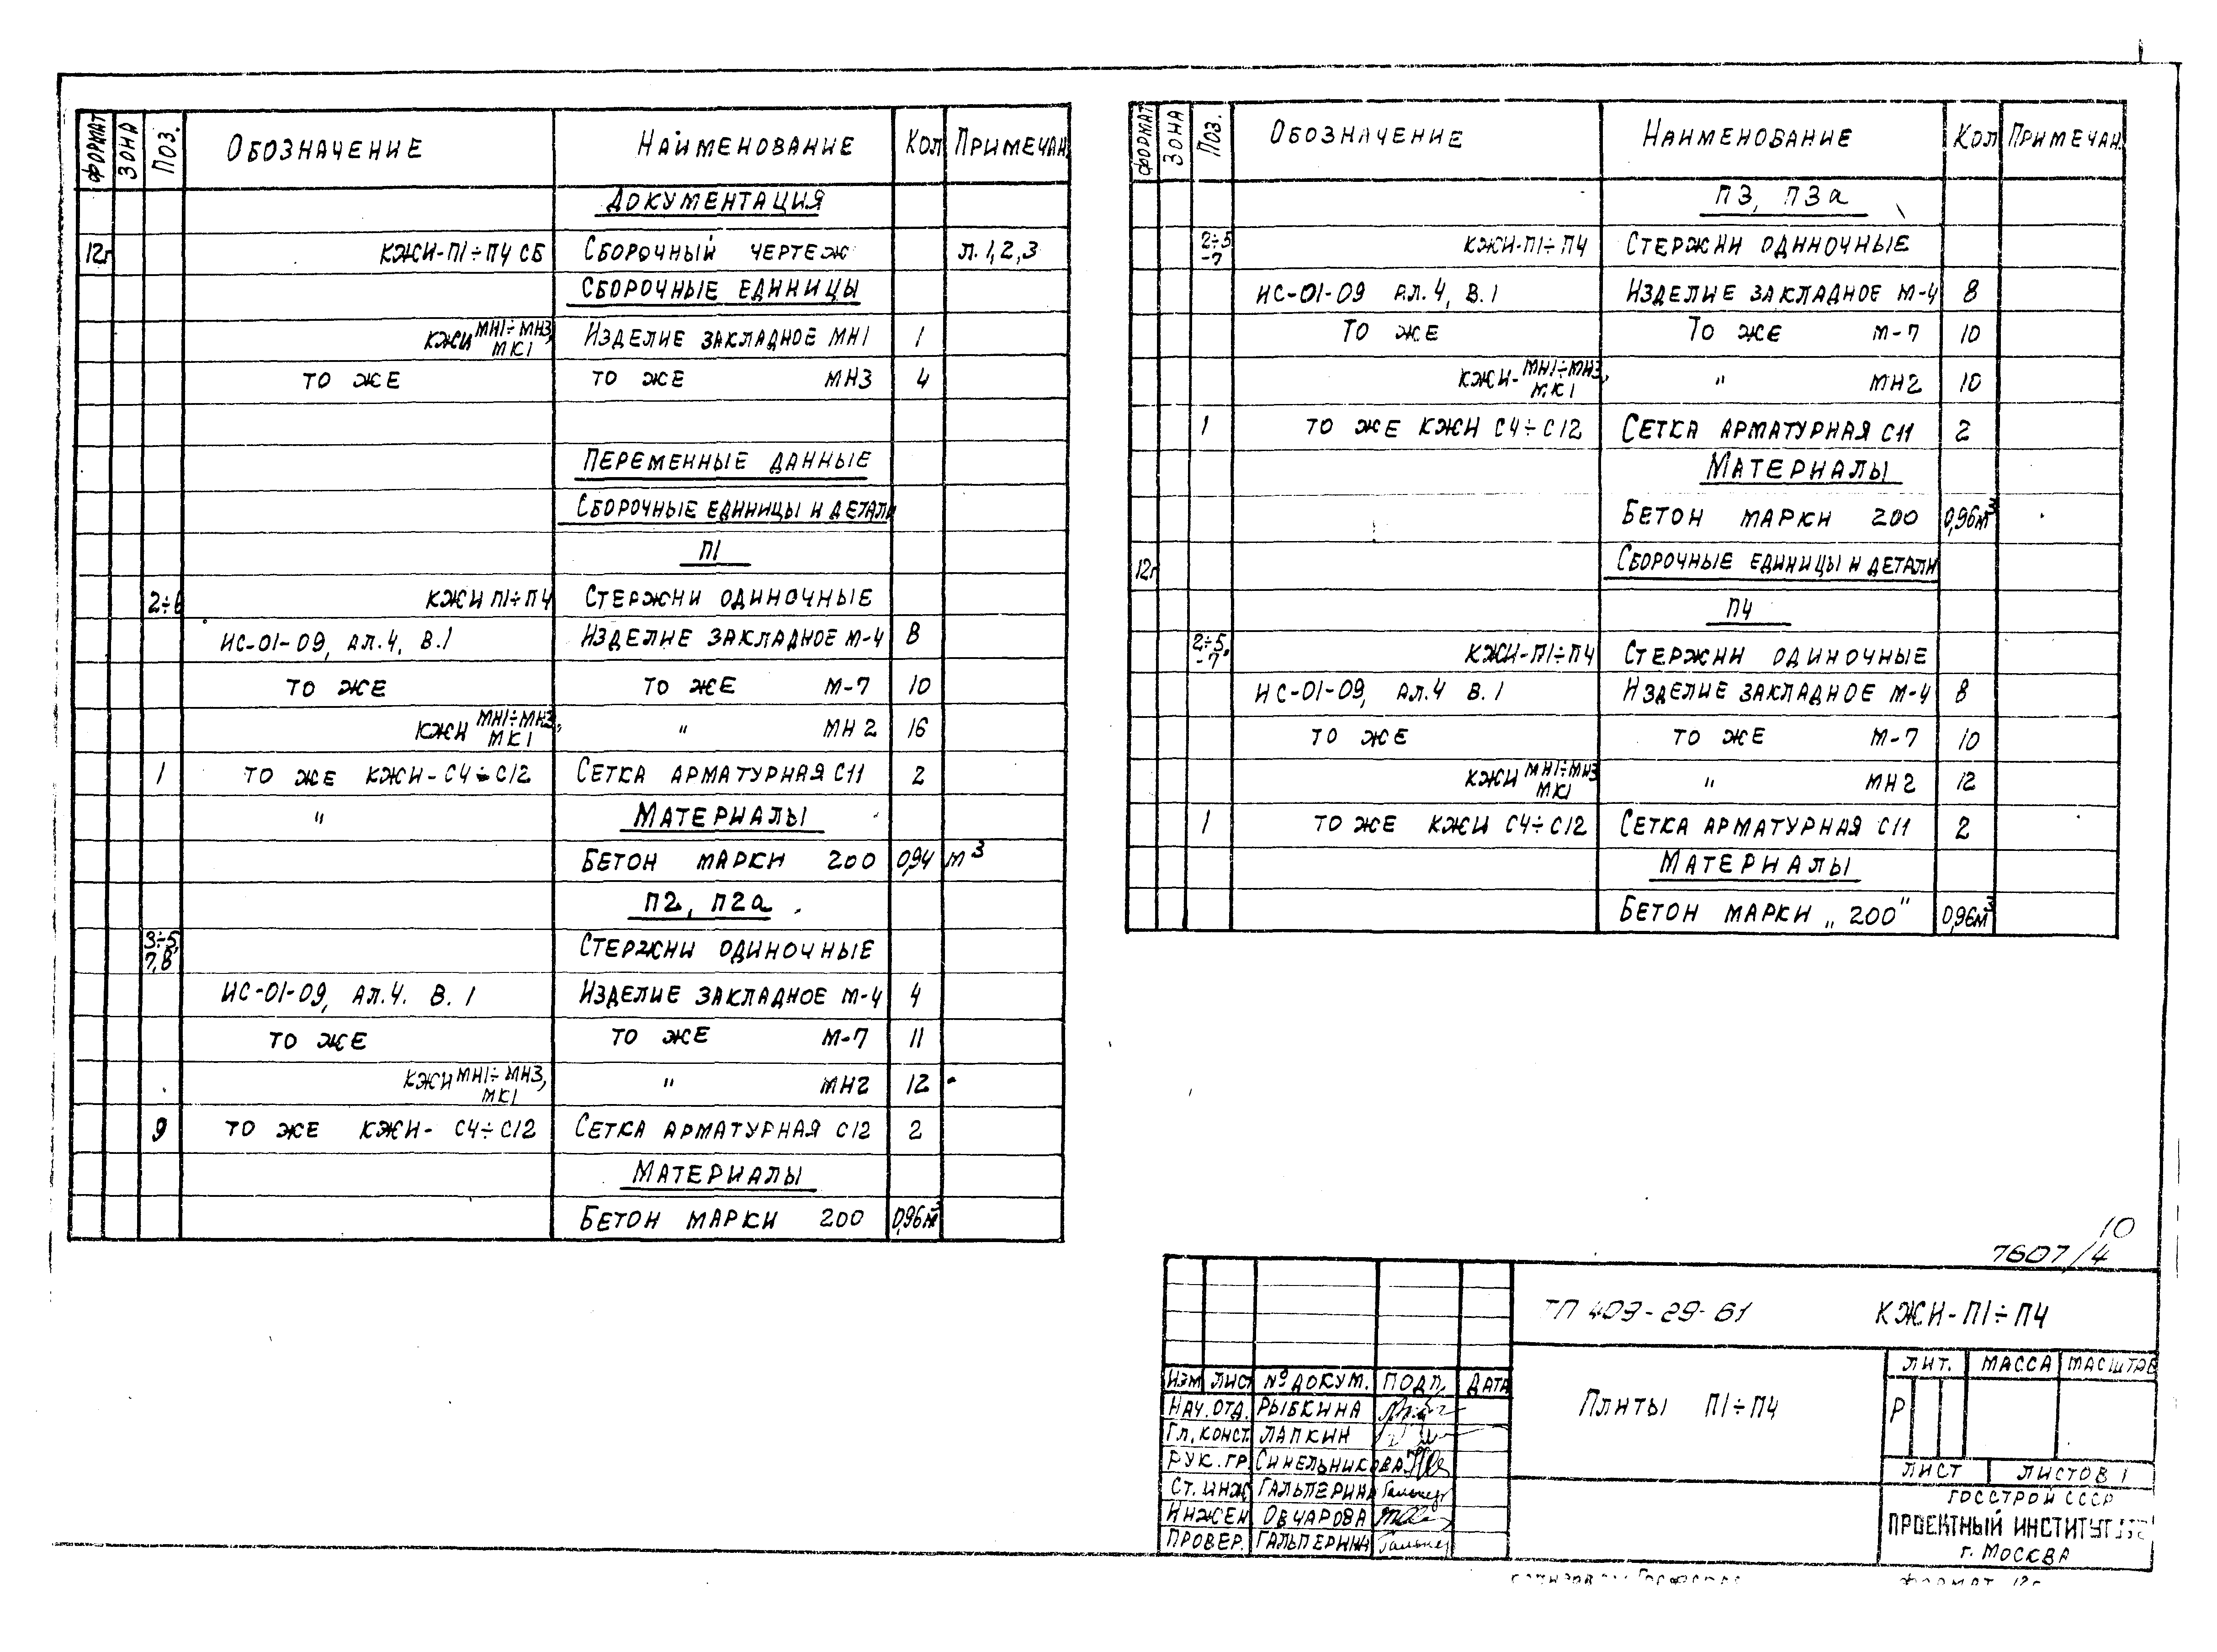 ФОРМАТ ЗОНА ПОЗ. ОБОЗНАЧЕНИЕ НАИМЕНОВАНИЕ КОЛ ПРИМЕЧАН.
ДОКУМЕНТАЦИЯ
12г КЖИ-П1÷П4 СБ СБОРОЧНЫЙ ЧЕРТЕЖ Л. 1,2,3
СБОРОЧНЫЕ ЕДИНИЦЫ
КЖИ МН1÷МН3, МК1 ИЗДЕЛИЕ ЗАКЛАДНОЕ МН1 1
ТО ЖЕ ТО ЖЕ МН3 4
ПЕРЕМЕННЫЕ ДАННЫЕ
СБОРОЧНЫЕ ЕДИНИЦЫ И ДЕТАЛИ
П1
2÷6 КЖИ П1÷П4 СТЕРЖНИ ОДИНОЧНЫЕ
ИС-01-09, АЛ.4, В.1 ИЗДЕЛИЕ ЗАКЛАДНОЕ М-4 8
ТО ЖЕ ТО ЖЕ М-7 10
КЖИ МН1÷МН3, МК1 " МН2 16
1 ТО ЖЕ КЖИ-С4÷С12 СЕТКА АРМАТУРНАЯ С11 2
" МАТЕРИАЛЫ
БЕТОН МАРКИ 200 0,94 м³
П2, П2а
3÷5, 7,8 СТЕРЖНИ ОДИНОЧНЫЕ
ИС-01-09, АЛ.4. В.1 ИЗДЕЛИЕ ЗАКЛАДНОЕ М-4 4
ТО ЖЕ ТО ЖЕ М-7 11
КЖИ МН1÷МН3, МК1 " МН2 12
9 ТО ЖЕ КЖИ- С4÷С12 СЕТКА АРМАТУРНАЯ С12 2
МАТЕРИАЛЫ
БЕТОН МАРКИ 200 0,96м³
ФОРМАТ ЗОНА ПОЗ. ОБОЗНАЧЕНИЕ НАИМЕНОВАНИЕ КОЛ ПРИМЕЧАН.
П3, П3а
2÷5 -7 КЖИ-П1÷П4 СТЕРЖНИ ОДИНОЧНЫЕ
ИС-01-09 АЛ.4, В.1 ИЗДЕЛИЕ ЗАКЛАДНОЕ М-4 8
ТО ЖЕ ТО ЖЕ М-7 10
КЖИ-МН1÷МН3, МК1 " МН2 10
1 ТО ЖЕ КЖИ С4÷С12 СЕТКА АРМАТУРНАЯ С11 2
МАТЕРИАЛЫ
БЕТОН МАРКИ 200 0,96м³
12г СБОРОЧНЫЕ ЕДИНИЦЫ И ДЕТАЛИ
П4
2÷5, -7 КЖИ-П1÷П4 СТЕРЖНИ ОДИНОЧНЫЕ
ИС-01-09, АЛ.4 В.1 ИЗДЕЛИЕ ЗАКЛАДНОЕ М-4 8
ТО ЖЕ ТО ЖЕ М-7 10
КЖИ МН1÷МН3 МК1 " МН2 12
1 ТО ЖЕ КЖИ С4÷С12 СЕТКА АРМАТУРНАЯ С11 2
МАТЕРИАЛЫ
БЕТОН МАРКИ „200" 0,96м³
10
7607/4
ТП 409-29-61 КЖИ-П1÷П4
ИЗМ ЛИСТ № ДОКУМ. ПОДП. ДАТА
НАЧ. ОТД. РЫБКИНА
ГЛ. КОНСТ. ЛАПКИН
РУК. ГР. СИНЕЛЬНИКОВА
СТ. ИНЖ ГАЛЬПЕРИНА
ИНЖЕН ОВЧАРОВА
ПРОВЕР. ГАЛЬПЕРИНА
ПЛИТЫ П1÷П4
ЛИТ. МАССА МАСШТАБ
Р
ЛИСТ ЛИСТОВ 1
ГОССТРОЙ СССР
ПРОЕКТНЫЙ ИНСТИТУТ
г. МОСКВА
ФОРМАТ 12г